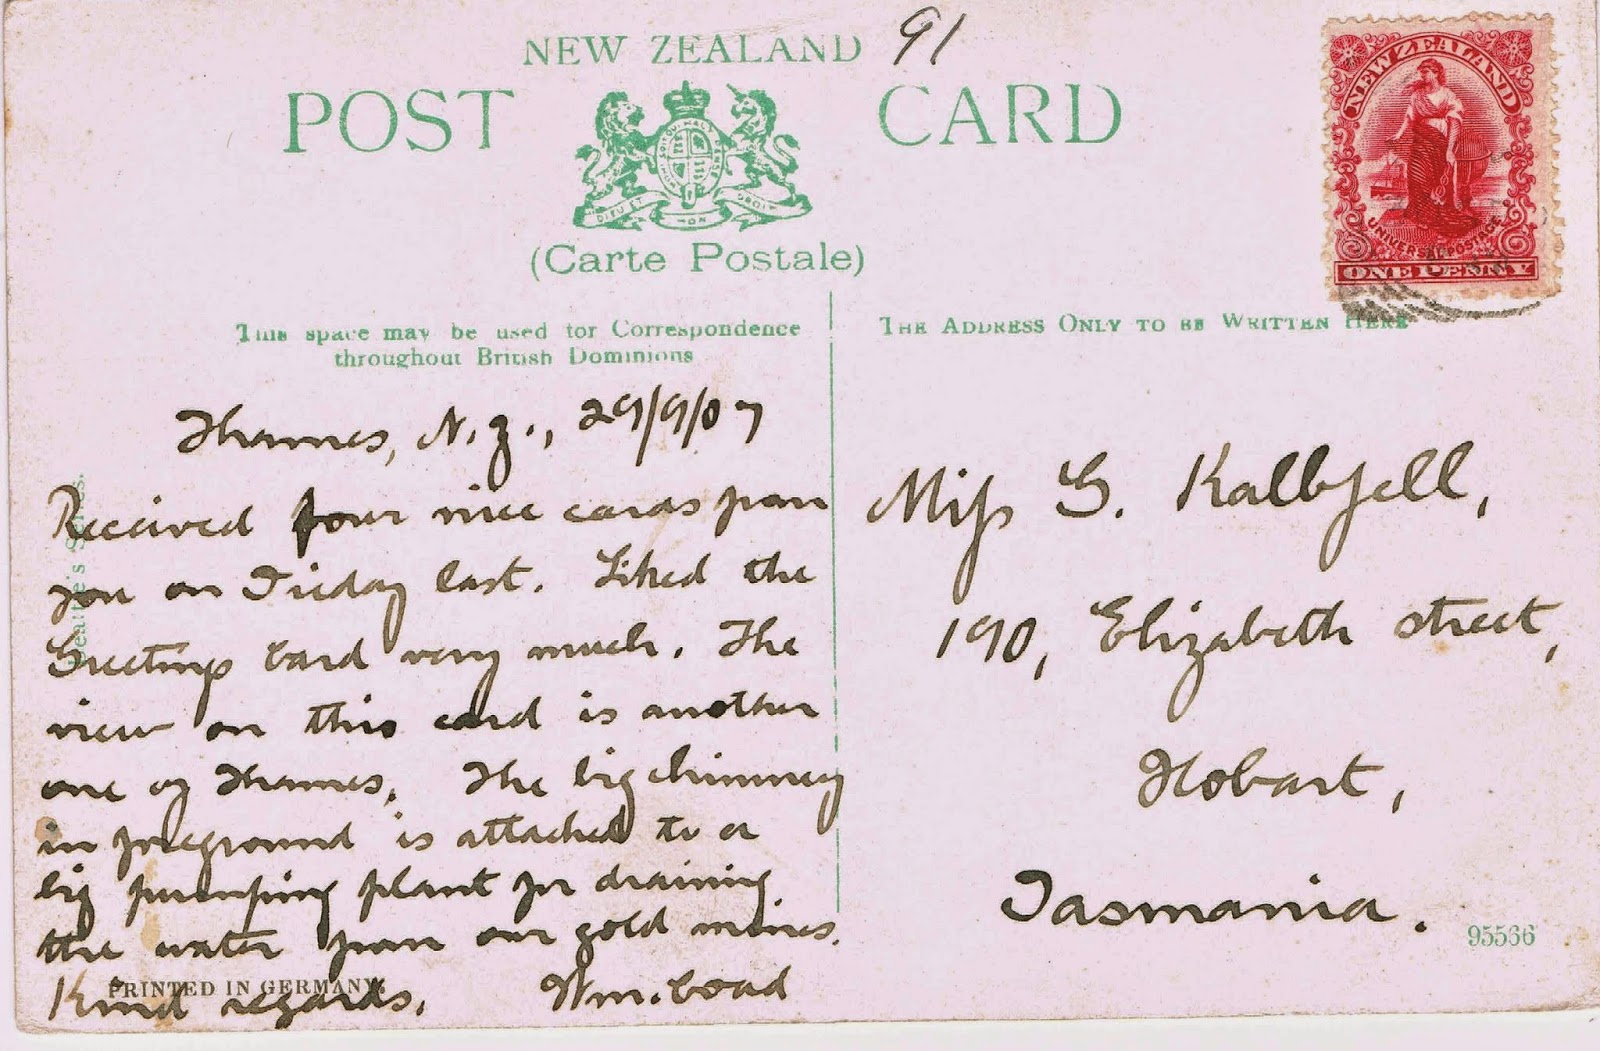 NEW ZEALAND 91
POST CARD
DIEU ET MON DROIT
(Carte Postale)
NEW ZEALAND
UNIVERSAL POSTAGE
ONE PENNY
This space may be used for Correspondence
throughout British Dominions
THE ADDRESS ONLY TO BE WRITTEN HERE
Thames, N.Z., 29/9/07
Received four nice cards from
you on Friday last. Liked the
Greetings card very much. The
view on this card is another
one of Thames. The big chimney
in foreground is attached to a
big pumping plant for draining
the water from our gold mines.
Kind regards. Wm. Coad
Miss G. Kalbfell,
190, Elizabeth street,
Hobart,
Tasmania.
Beattie's Series.
PRINTED IN GERMANY.
95536